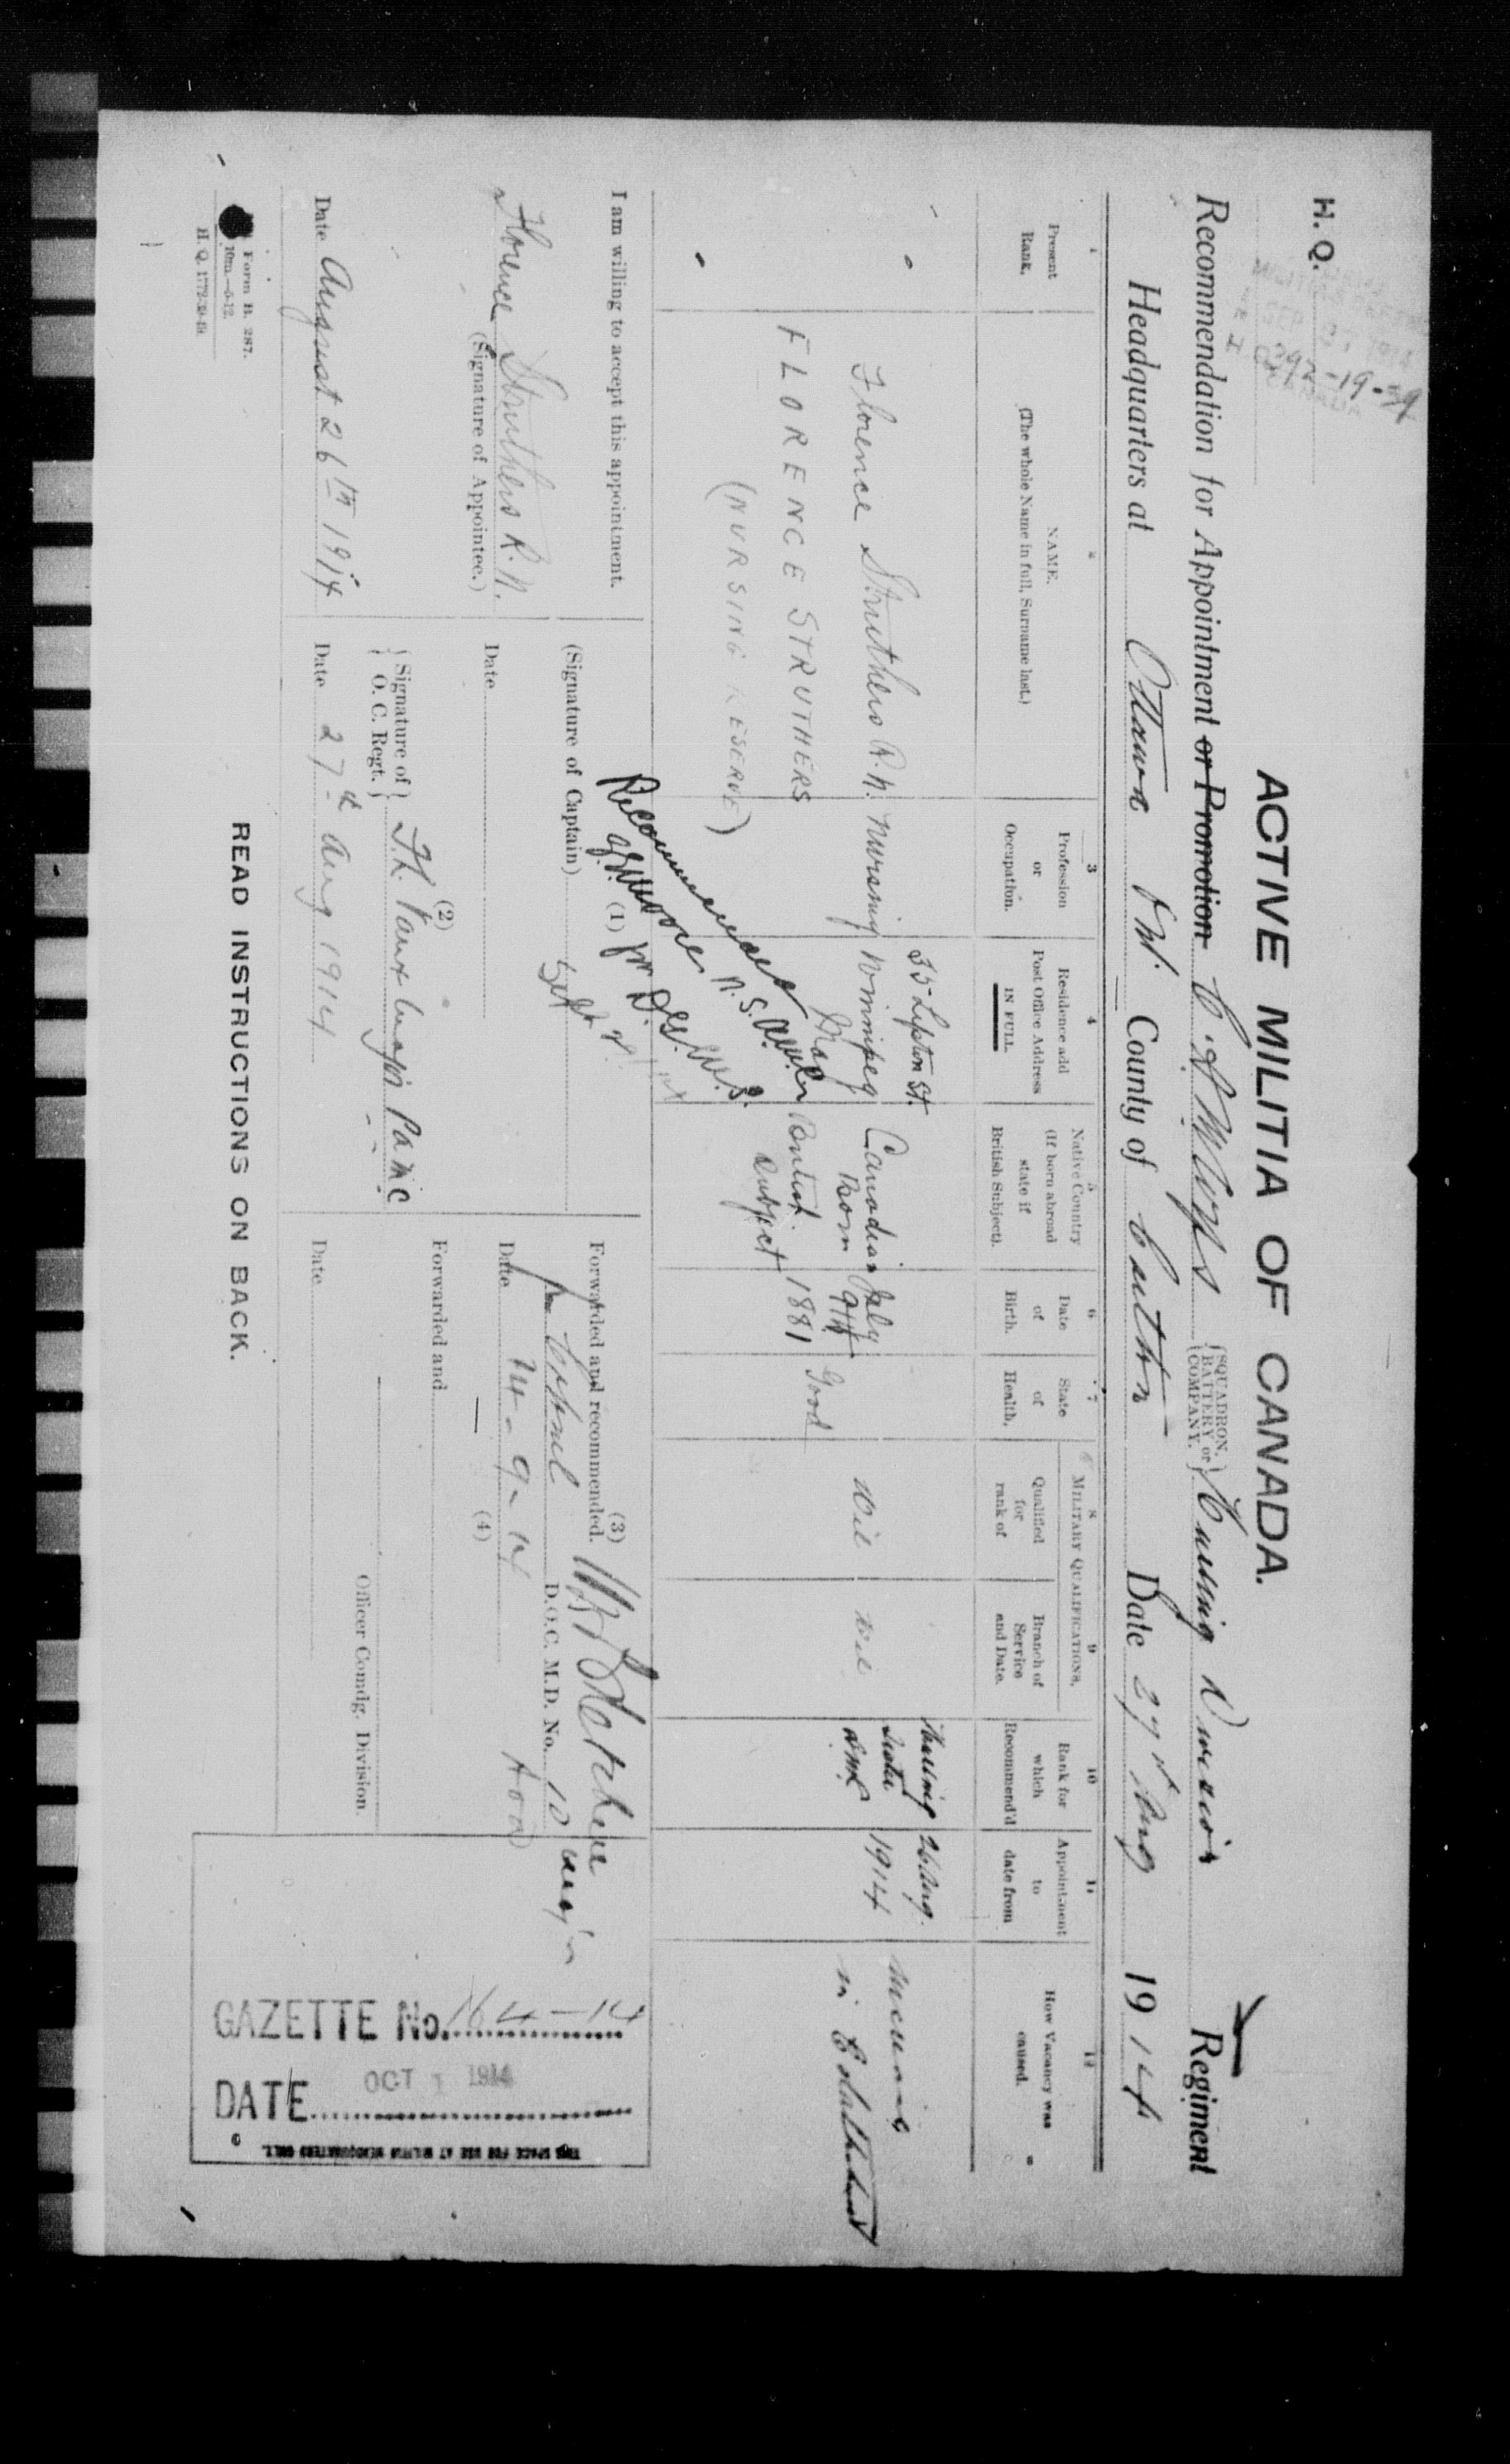 H. Q.
SEP 1914
H Q 392-19-39
CANADA
ACTIVE MILITIA OF CANADA.
Recommendation for Appointment or Promotion C. A. M. Corps { SQUADRON, BATTERY or COMPANY. } Nursing Service Regiment
Headquarters at Ottawa Ont. County of Carleton Date 27th Aug 1914
1
Present Rank.
2
NAME.
(The whole Name in full, Surname last.)
3
Profession or Occupation.
4
Residence add Post Office Address IN FULL.
5
Native Country (If born abroad state if British Subject).
6
Date of Birth.
7
State of Health.
MILITARY QUALIFICATIONS.
8
Qualified for rank of
9
Branch of Service and Date.
10
Rank for which Recommend'd
11
Appointment to date from
12
How Vacancy was caused.
Florence Struthers R.N.
FLORENCE STRUTHERS
(NURSING RESERVE)
Nursing
35 Lipton St.
Winnipeg
Man
Canadian
Born
British
Subject
July
9th
1881
Good
Nil
Nil
Nursing
Sister
26 Aug.
1914
in Establishment
Recommended
I am willing to accept this appointment.
Florence Struthers R.N.
(Signature of Appointee.)
Date August 26th 1914
(1)
(Signature of Captain)
Date
(2)
{ Signature of O. C. Regt. } Major PAMC
Date 27th Aug 1914
(3)
Forwarded and recommended.
for Colonel D.O.C. M.D. No. 10
Date 14-9-14
(4)
Forwarded and
Officer Comdg. Division.
Date
GAZETTE No. 164-14
DATE OCT 1 1914
THIS SPACE FOR USE AT MILITIA HEADQUARTERS ONLY.
Form B. 287.
10m.-5-12.
H. Q. 1772-39-48.
READ INSTRUCTIONS ON BACK.